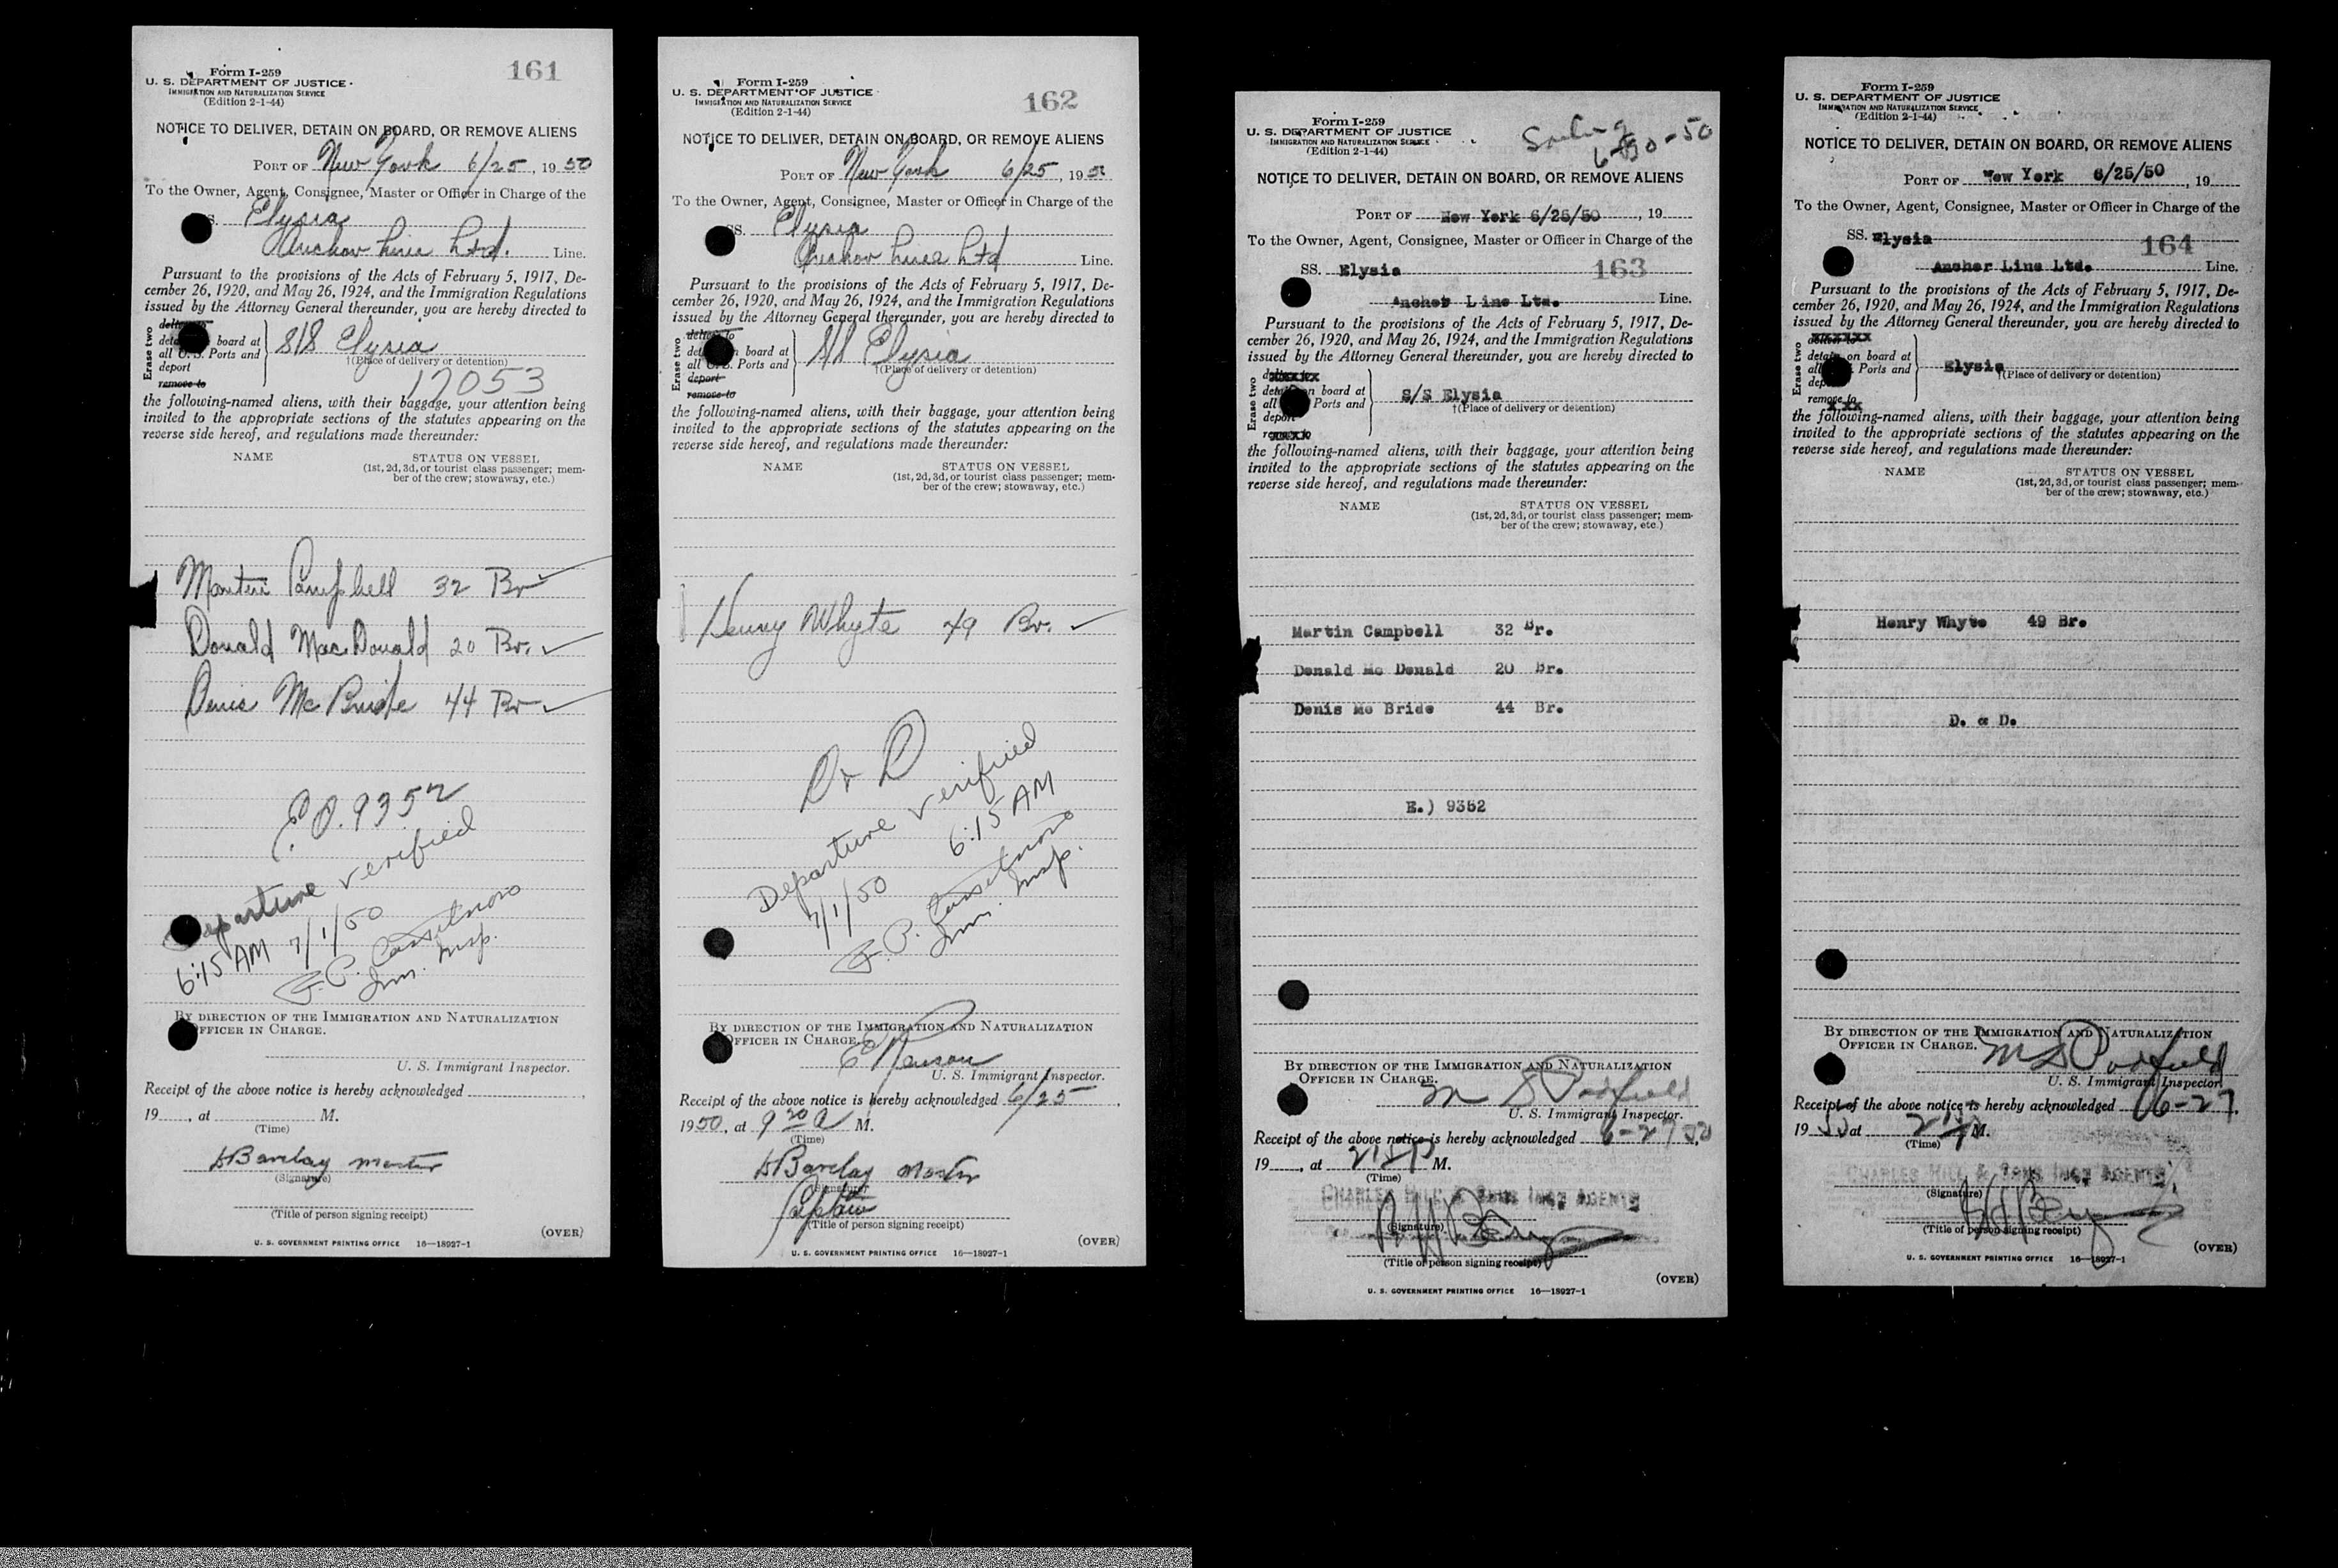 161
Form I-259
U. S. DEPARTMENT OF JUSTICE
IMMIGRATION AND NATURALIZATION SERVICE
(Edition 2-1-44)
NOTICE TO DELIVER, DETAIN ON BOARD, OR REMOVE ALIENS
PORT OF New York 6/25, 1950
To the Owner, Agent, Consignee, Master or Officer in Charge of the
Elysia
Anchor Line Ltd. Line.
Pursuant to the provisions of the Acts of February 5, 1917, De-
cember 26, 1920, and May 26, 1924, and the Immigration Regulations
issued by the Attorney General thereunder, you are hereby directed to
Erase two
board at
all Ports and
deport
remove to
S/S Elysia
†(Place of delivery or detention)
17053
the following-named aliens, with their baggage, your attention being
invited to the appropriate sections of the statutes appearing on the
reverse side hereof, and regulations made thereunder:
NAME STATUS ON VESSEL
(1st, 2d, 3d, or tourist class passenger; mem-
ber of the crew; stowaway, etc.)
Martin Campbell 32 Br
Donald MacDonald 20 Br.
Denis McBride 44 Br
E.O. 9352
Departure verified
6:15 AM 7/1/50
Imm. Insp.
BY DIRECTION OF THE IMMIGRATION AND NATURALIZATION
OFFICER IN CHARGE.
U. S. Immigrant Inspector.
Receipt of the above notice is hereby acknowledged
19, at M.
(Time)
Barclay Master
(Signature)
(Title of person signing receipt)
(OVER)
U. S. GOVERNMENT PRINTING OFFICE 16—18927-1
162
Form I-259
U. S. DEPARTMENT OF JUSTICE
IMMIGRATION AND NATURALIZATION SERVICE
(Edition 2-1-44)
NOTICE TO DELIVER, DETAIN ON BOARD, OR REMOVE ALIENS
PORT OF New York 6/25, 1950
To the Owner, Agent, Consignee, Master or Officer in Charge of the
SS. Elysia
Anchor Line Ltd Line.
Pursuant to the provisions of the Acts of February 5, 1917, De-
cember 26, 1920, and May 26, 1924, and the Immigration Regulations
issued by the Attorney General thereunder, you are hereby directed to
Erase two
deliver to
board at
all Ports and
deport
remove to
S/S Elysia
†(Place of delivery or detention)
the following-named aliens, with their baggage, your attention being
invited to the appropriate sections of the statutes appearing on the
reverse side hereof, and regulations made thereunder:
NAME STATUS ON VESSEL
(1st, 2d, 3d, or tourist class passenger; mem-
ber of the crew; stowaway, etc.)
Henry Whyte 49 Br.
D & D
Departure verified
7/1/50 6:15 AM
Imm. Insp.
BY DIRECTION OF THE IMMIGRATION AND NATURALIZATION
OFFICER IN CHARGE.
U. S. Immigrant Inspector.
Receipt of the above notice is hereby acknowledged 6/25
1950, at 9 20 a M.
(Time)
Barclay Master
(Signature)
Captain
(Title of person signing receipt)
(OVER)
U. S. GOVERNMENT PRINTING OFFICE 16—18927-1
Form I-259
U. S. DEPARTMENT OF JUSTICE
IMMIGRATION AND NATURALIZATION SERVICE
(Edition 2-1-44)
Sailing
6-30-50
NOTICE TO DELIVER, DETAIN ON BOARD, OR REMOVE ALIENS
PORT OF New York 6/25/50, 19
To the Owner, Agent, Consignee, Master or Officer in Charge of the
SS. Elysia 163
Anchor Line Ltd. Line.
Pursuant to the provisions of the Acts of February 5, 1917, De-
cember 26, 1920, and May 26, 1924, and the Immigration Regulations
issued by the Attorney General thereunder, you are hereby directed to
Erase two
on board at
all Ports and
deport
S/S Elysia
†(Place of delivery or detention)
the following-named aliens, with their baggage, your attention being
invited to the appropriate sections of the statutes appearing on the
reverse side hereof, and regulations made thereunder:
NAME STATUS ON VESSEL
(1st, 2d, 3d, or tourist class passenger; mem-
ber of the crew; stowaway, etc.)
Martin Campbell 32 Br.
Donald Mc Donald 20 Br.
Denis Mc Bride 44 Br.
E.) 9352
BY DIRECTION OF THE IMMIGRATION AND NATURALIZATION
OFFICER IN CHARGE.
U. S. Immigrant Inspector.
Receipt of the above notice is hereby acknowledged 6-27 50
19, at M.
(Time)
CHARLES HILL & SONS INC. AGENTS
(Signature)
(Title of person signing receipt)
(OVER)
U. S. GOVERNMENT PRINTING OFFICE 16—18927-1
Form I-259
U. S. DEPARTMENT OF JUSTICE
IMMIGRATION AND NATURALIZATION SERVICE
(Edition 2-1-44)
NOTICE TO DELIVER, DETAIN ON BOARD, OR REMOVE ALIENS
PORT OF New York 6/25/50, 19
To the Owner, Agent, Consignee, Master or Officer in Charge of the
SS. Elysia 164
Anchor Line Ltd. Line.
Pursuant to the provisions of the Acts of February 5, 1917, De-
cember 26, 1920, and May 26, 1924, and the Immigration Regulations
issued by the Attorney General thereunder, you are hereby directed to
Erase two
detain on board at
all Ports and
remove to
Elysia
†(Place of delivery or detention)
the following-named aliens, with their baggage, your attention being
invited to the appropriate sections of the statutes appearing on the
reverse side hereof, and regulations made thereunder:
NAME STATUS ON VESSEL
(1st, 2d, 3d, or tourist class passenger; mem-
ber of the crew; stowaway, etc.)
Henry Whyte 49 Br.
D. & D.
BY DIRECTION OF THE IMMIGRATION AND NATURALIZATION
OFFICER IN CHARGE.
U. S. Immigrant Inspector.
Receipt of the above notice is hereby acknowledged 6-27
1950 at M.
(Time)
CHARLES HILL & SONS INC. AGENTS
(Signature)
(Title of person signing receipt)
(OVER)
U. S. GOVERNMENT PRINTING OFFICE 16—18927-1